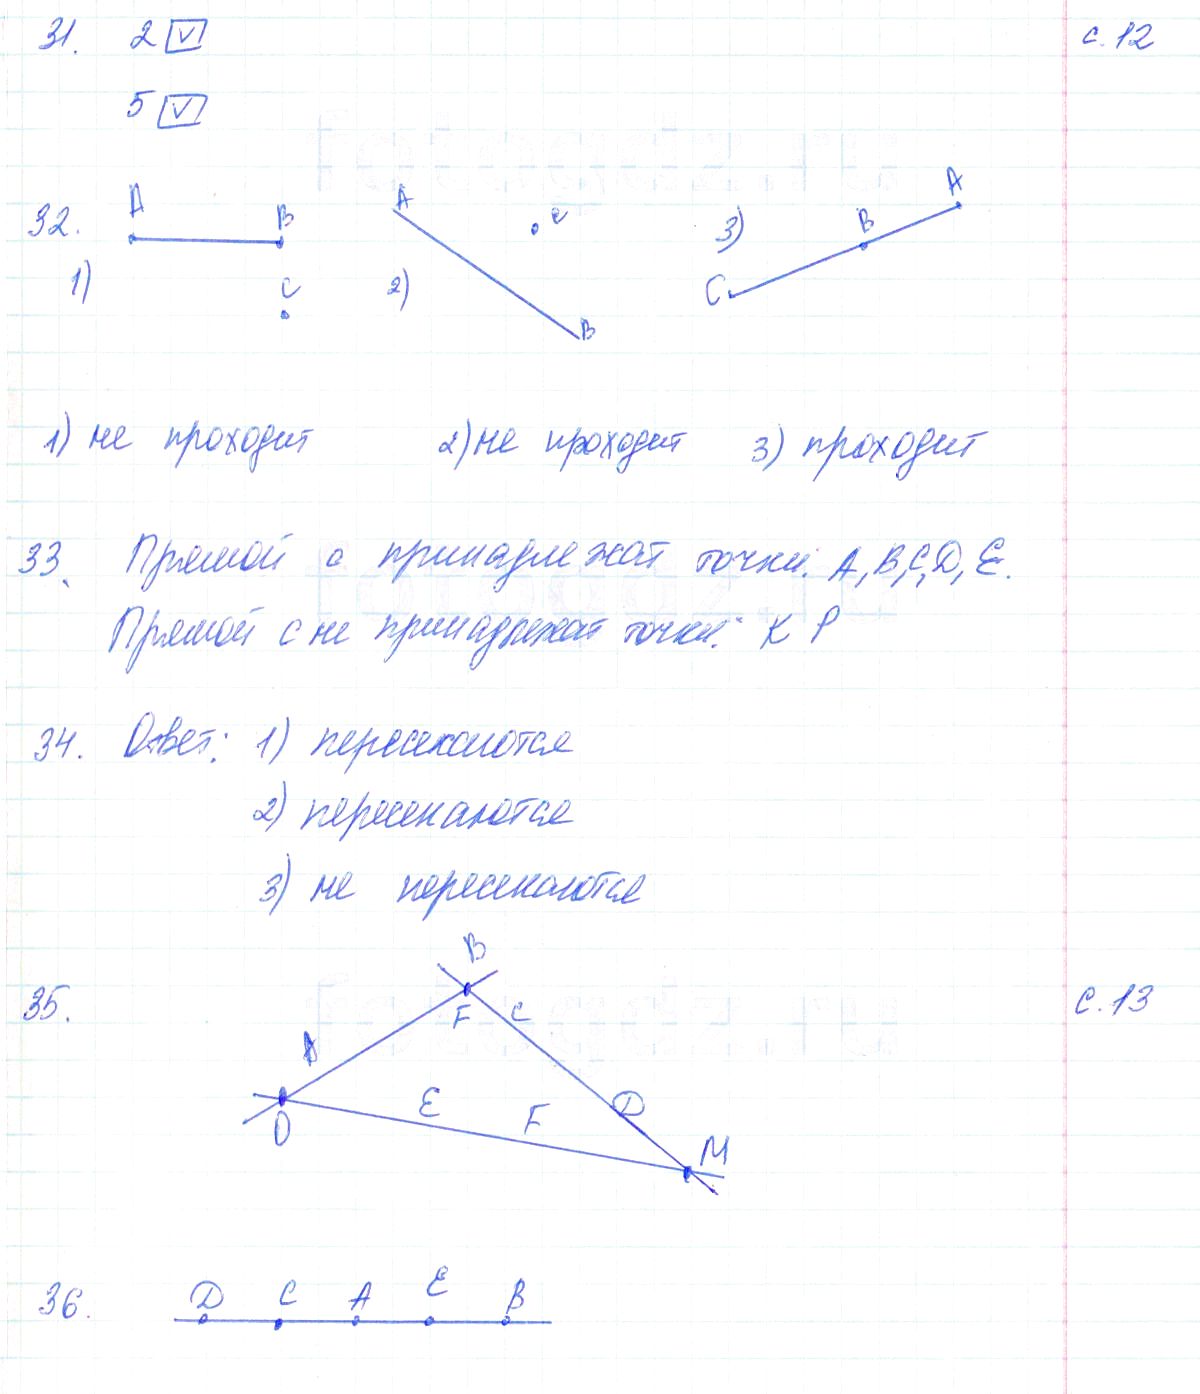 31. 2 ☑ с. 12
5 ☑
32. A B A с 3) B A
1) C 2) B C
1) не проходит 2) не проходит 3) проходит
33. Прямой с принадлежат точки: A, B, C, D, E.
Прямой с не принадлежат точки: K P
34. Ответ: 1) пересекаются
2) пересекаются
3) не пересекаются
35. B с. 13
F C
A
O E F D
M
36. D C A E B